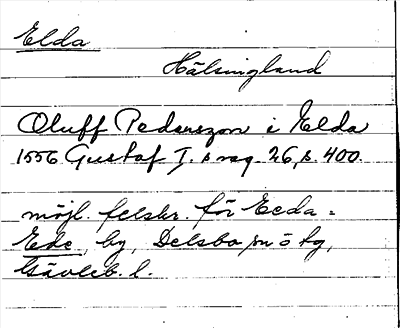 Elda
Hälsingland
Oluff Pedersson i Elda
1556 Gustaf I. s reg. 26, s. 400.
möjl. felskr. för Eeda =
Ede, by, Delsbo sn o tg,
Gävleb. l.